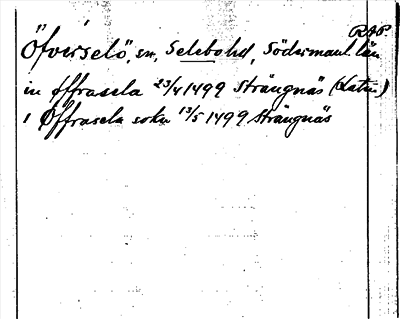 RAP
Öfverselö, sn, Selebohd, Södermanl. län
in Øffrasela 23/4 1499 Strängnäs (Latin)
i Øffrasela sokn 13/5 1499 Strängnäs